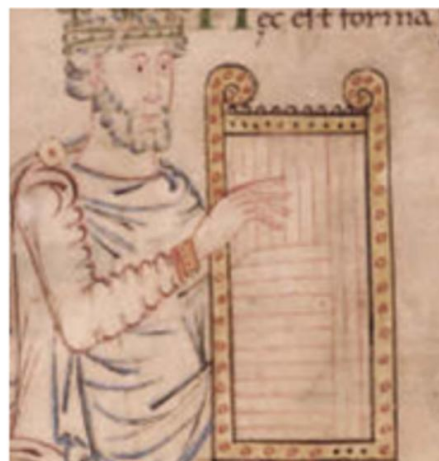 Hęc est forma